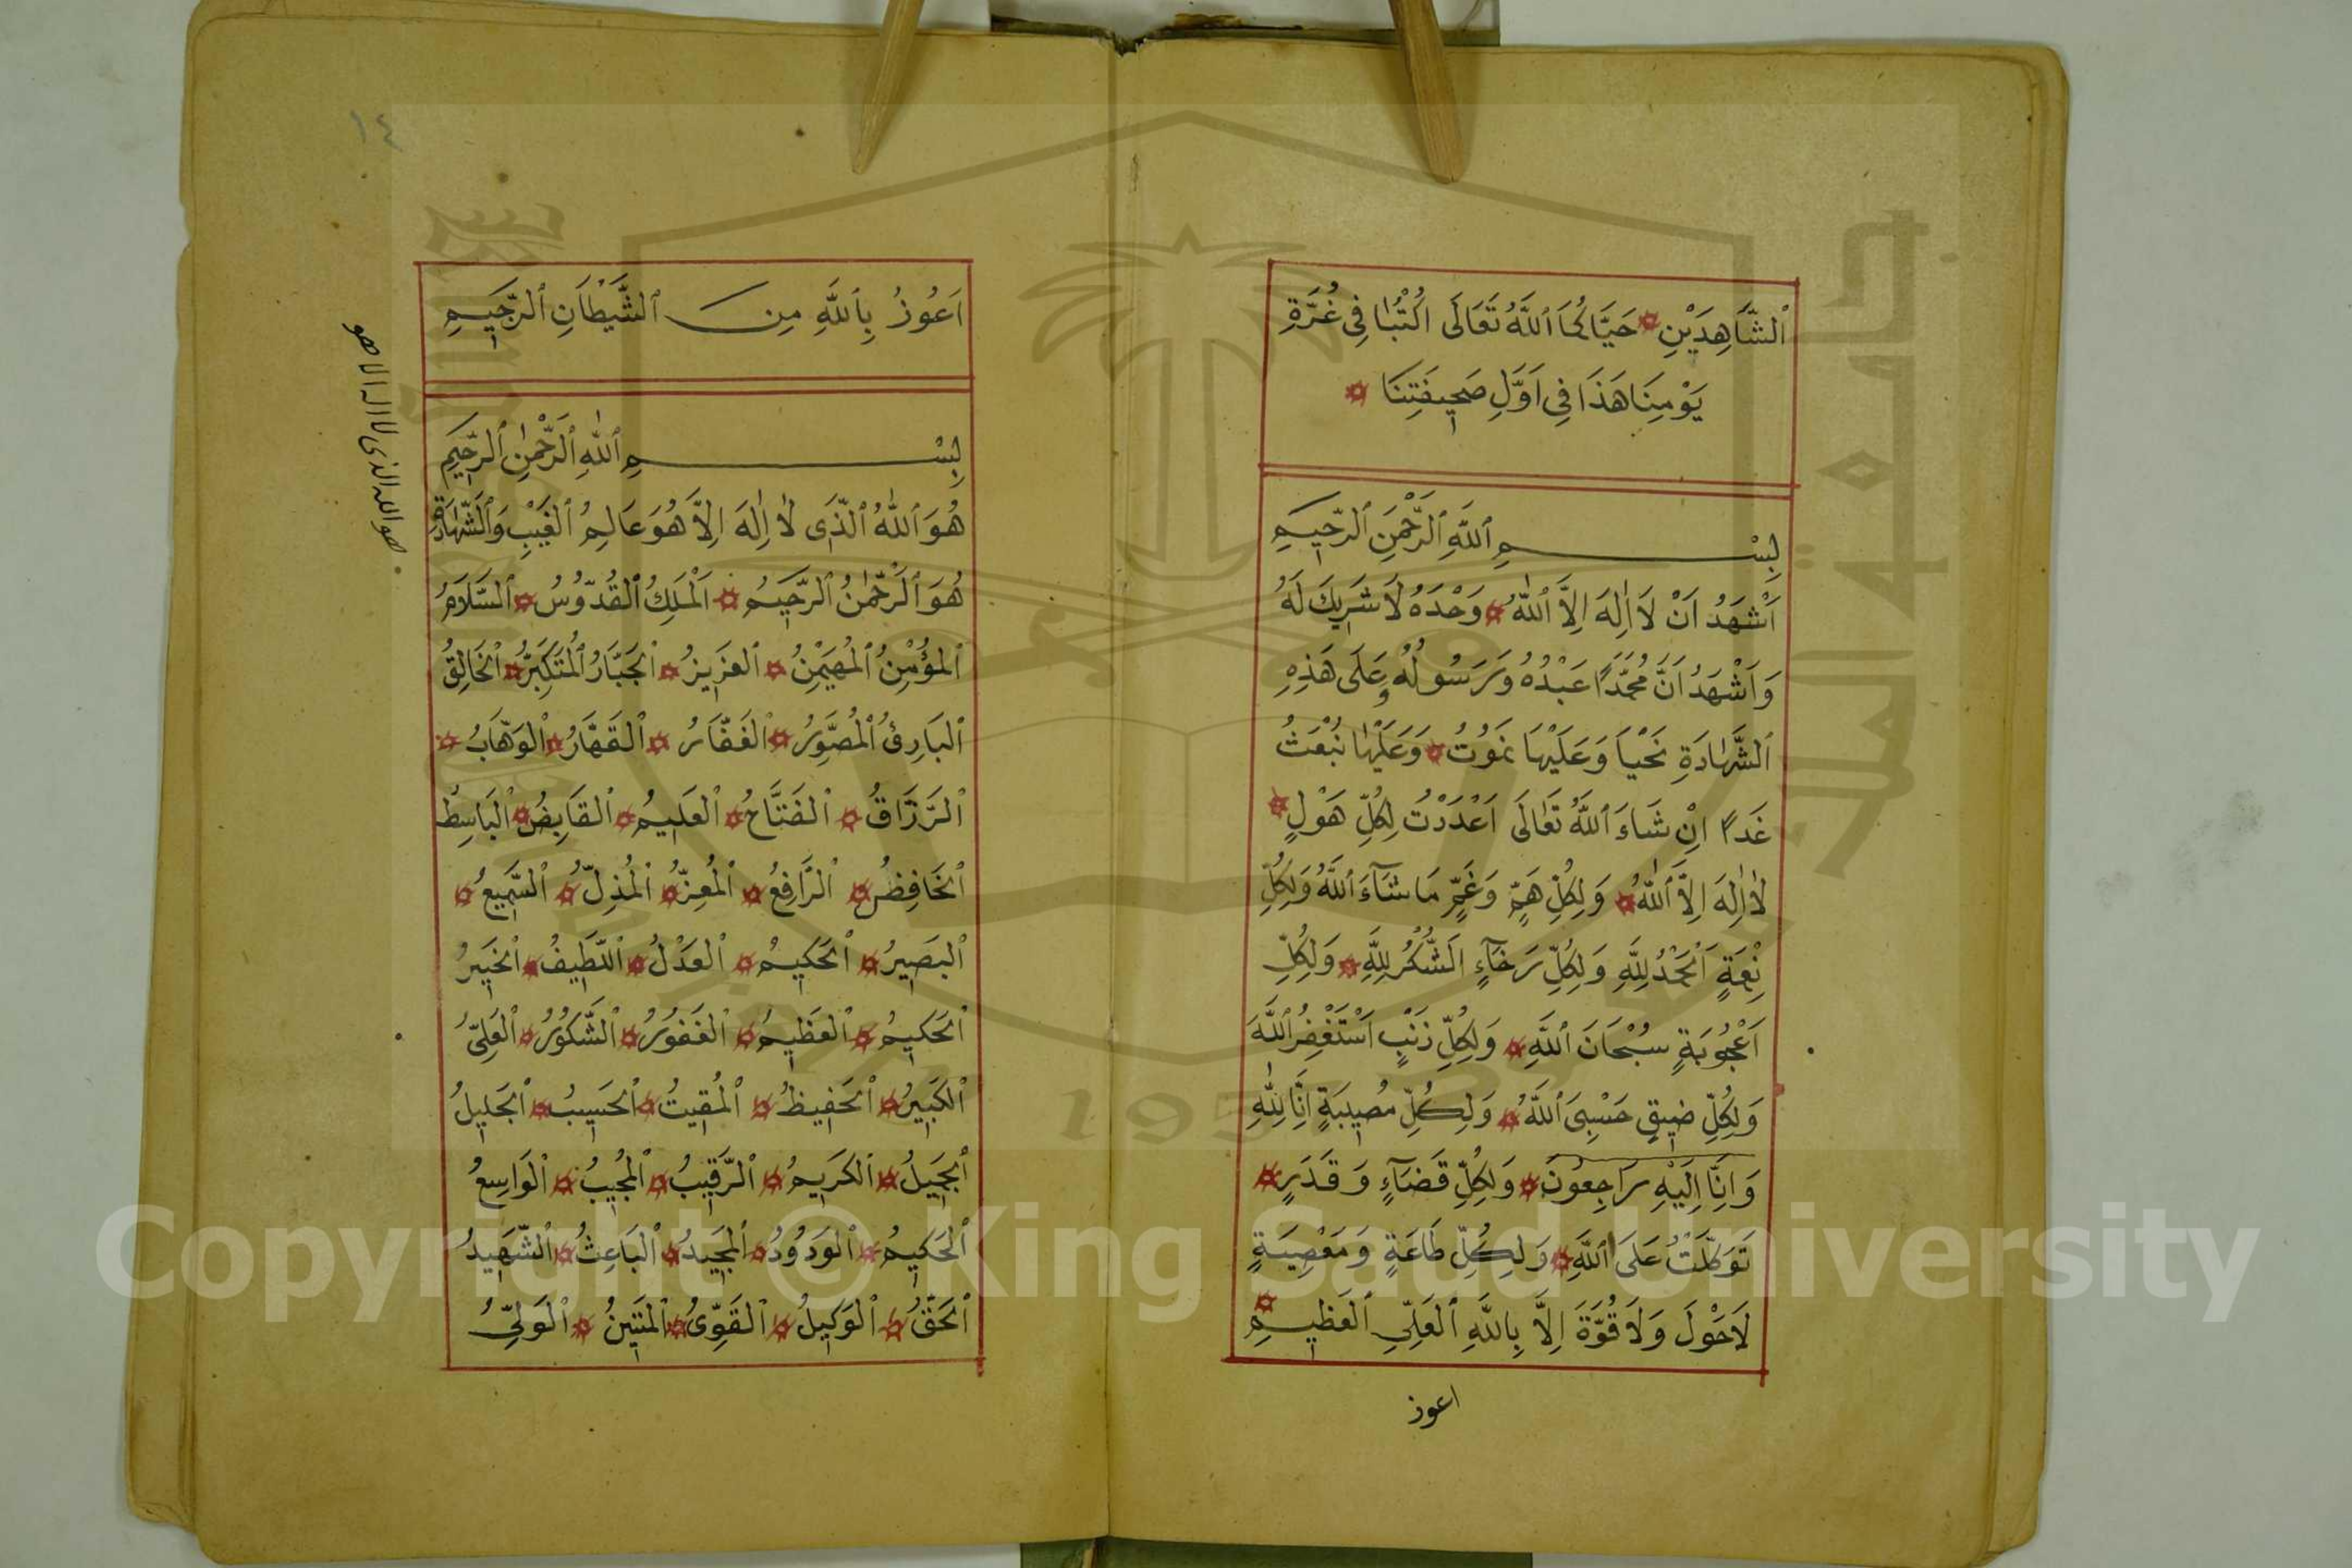 ٱلشَّاهِدَيْنِ حَيَّاكُمَا ٱللَّهُ تَعَالَى اكْتُبَا فِى غُرَّةِ
يَوْمِنَا هَذَا فِى اَوَّلِ صَحِيفَتِنَا
بِسْمِ ٱللَّهِ ٱلرَّحْمَنِ ٱلرَّحِيمِ
اَشْهَدُ اَنْ لَا اِلٰهَ اِلَّا ٱللّٰهُ وَحْدَهُ لَا شَرِيكَ لَهُ
وَاَشْهَدُ اَنَّ مُحَمَّدًا عَبْدُهُ وَرَسُولُهُ وَعَلَى هَذِهِ
ٱلشَّهَادَةِ نَحْيَا وَعَلَيْهَا نَمُوتُ وَعَلَيْهَا نُبْعَثُ
غَدًا اِنْ شَاءَ ٱللَّهُ تَعَالَى اَعْدَدْتُ لِكُلِّ هَوْلٍ
لَا اِلٰهَ اِلَّا ٱللّٰهُ وَلِكُلِّ هَمٍّ وَغَمٍّ مَا شَآءَ ٱللَّهُ وَلِكُلِّ
نِعْمَةٍ اَلْحَمْدُ لِلَّهِ وَلِكُلِّ رَخَآءٍ اَلشُّكْرُ لِلَّهِ وَلِكُلِّ
اَعْجُوبَةٍ سُبْحَانَ ٱللَّهِ وَلِكُلِّ ذَنْبٍ اَسْتَغْفِرُ ٱللَّهَ
وَلِكُلِّ ضِيقٍ حَسْبِىَ ٱللَّهُ وَلِكُلِّ مُصِيبَةٍ اِنَّا لِلّٰهِ
وَاِنَّا اِلَيْهِ رَاجِعُونَ وَلِكُلِّ قَضَآءٍ وَقَدَرٍ
تَوَكَّلْتُ عَلَى ٱللَّهِ وَلِكُلِّ طَاعَةٍ وَمَعْصِيَةٍ
لَاحَوْلَ وَلَا قُوَّةَ اِلَّا بِاللَّهِ ٱلْعَلِيِّ ٱلْعَظِيمِ
اعوذ
١٤
اَعُوذُ بِٱللَّهِ مِنَ ٱلشَّيْطَانِ ٱلرَّجِيمِ
بِسْمِ ٱللّٰهِ ٱلرَّحْمٰنِ ٱلرَّحِيمِ
هُوَ ٱللّٰهُ ٱلَّذِى لَا اِلٰهَ اِلَّا هُوَ عَالِمُ ٱلْغَيْبِ وَٱلشَّهَادَةِ
هُوَ ٱلرَّحْمٰنُ ٱلرَّحِيمُ اَلْمَلِكُ ٱلْقُدُّوسُ ٱلسَّلَامُ
ٱلْمُؤْمِنُ ٱلْمُهَيْمِنُ ٱلْعَزِيزُ ٱلْجَبَّارُ ٱلْمُتَكَبِّرُ ٱلْخَالِقُ
ٱلْبَارِئُ ٱلْمُصَوِّرُ ٱلْغَفَّارُ ٱلْقَهَّارُ ٱلْوَهَّابُ
ٱلرَّزَّاقُ ٱلْفَتَّاحُ ٱلْعَلِيمُ ٱلْقَابِضُ ٱلْبَاسِطُ
ٱلْخَافِظُ ٱلرَّافِعُ ٱلْمُعِزُّ ٱلْمُذِلُّ ٱلسَّمِيعُ
ٱلْبَصِيرُ ٱلْحَكِيمُ ٱلْعَدْلُ ٱللَّطِيفُ ٱلْخَبِيرُ
ٱلْحَكِيمُ ٱلْعَظِيمُ ٱلْغَفُورُ ٱلشَّكُورُ ٱلْعَلِىُّ
ٱلْكَبِيرُ ٱلْحَفِيظُ ٱلْمُقِيتُ ٱلْحَسِيبُ ٱلْجَلِيلُ
ٱلْجَمِيلُ ٱلْكَرِيمُ ٱلرَّقِيبُ ٱلْمُجِيبُ ٱلْوَاسِعُ
ٱلْحَكِيمُ ٱلْوَدُودُ ٱلْمَجِيدُ ٱلْبَاعِثُ ٱلشَّهِيدُ
ٱلْحَقُّ ٱلْوَكِيلُ ٱلْقَوِىُّ ٱلْمَتِينُ ٱلْوَلِىُّ
هو الله الذى لا اله الا هو
Copyright © King Saud University